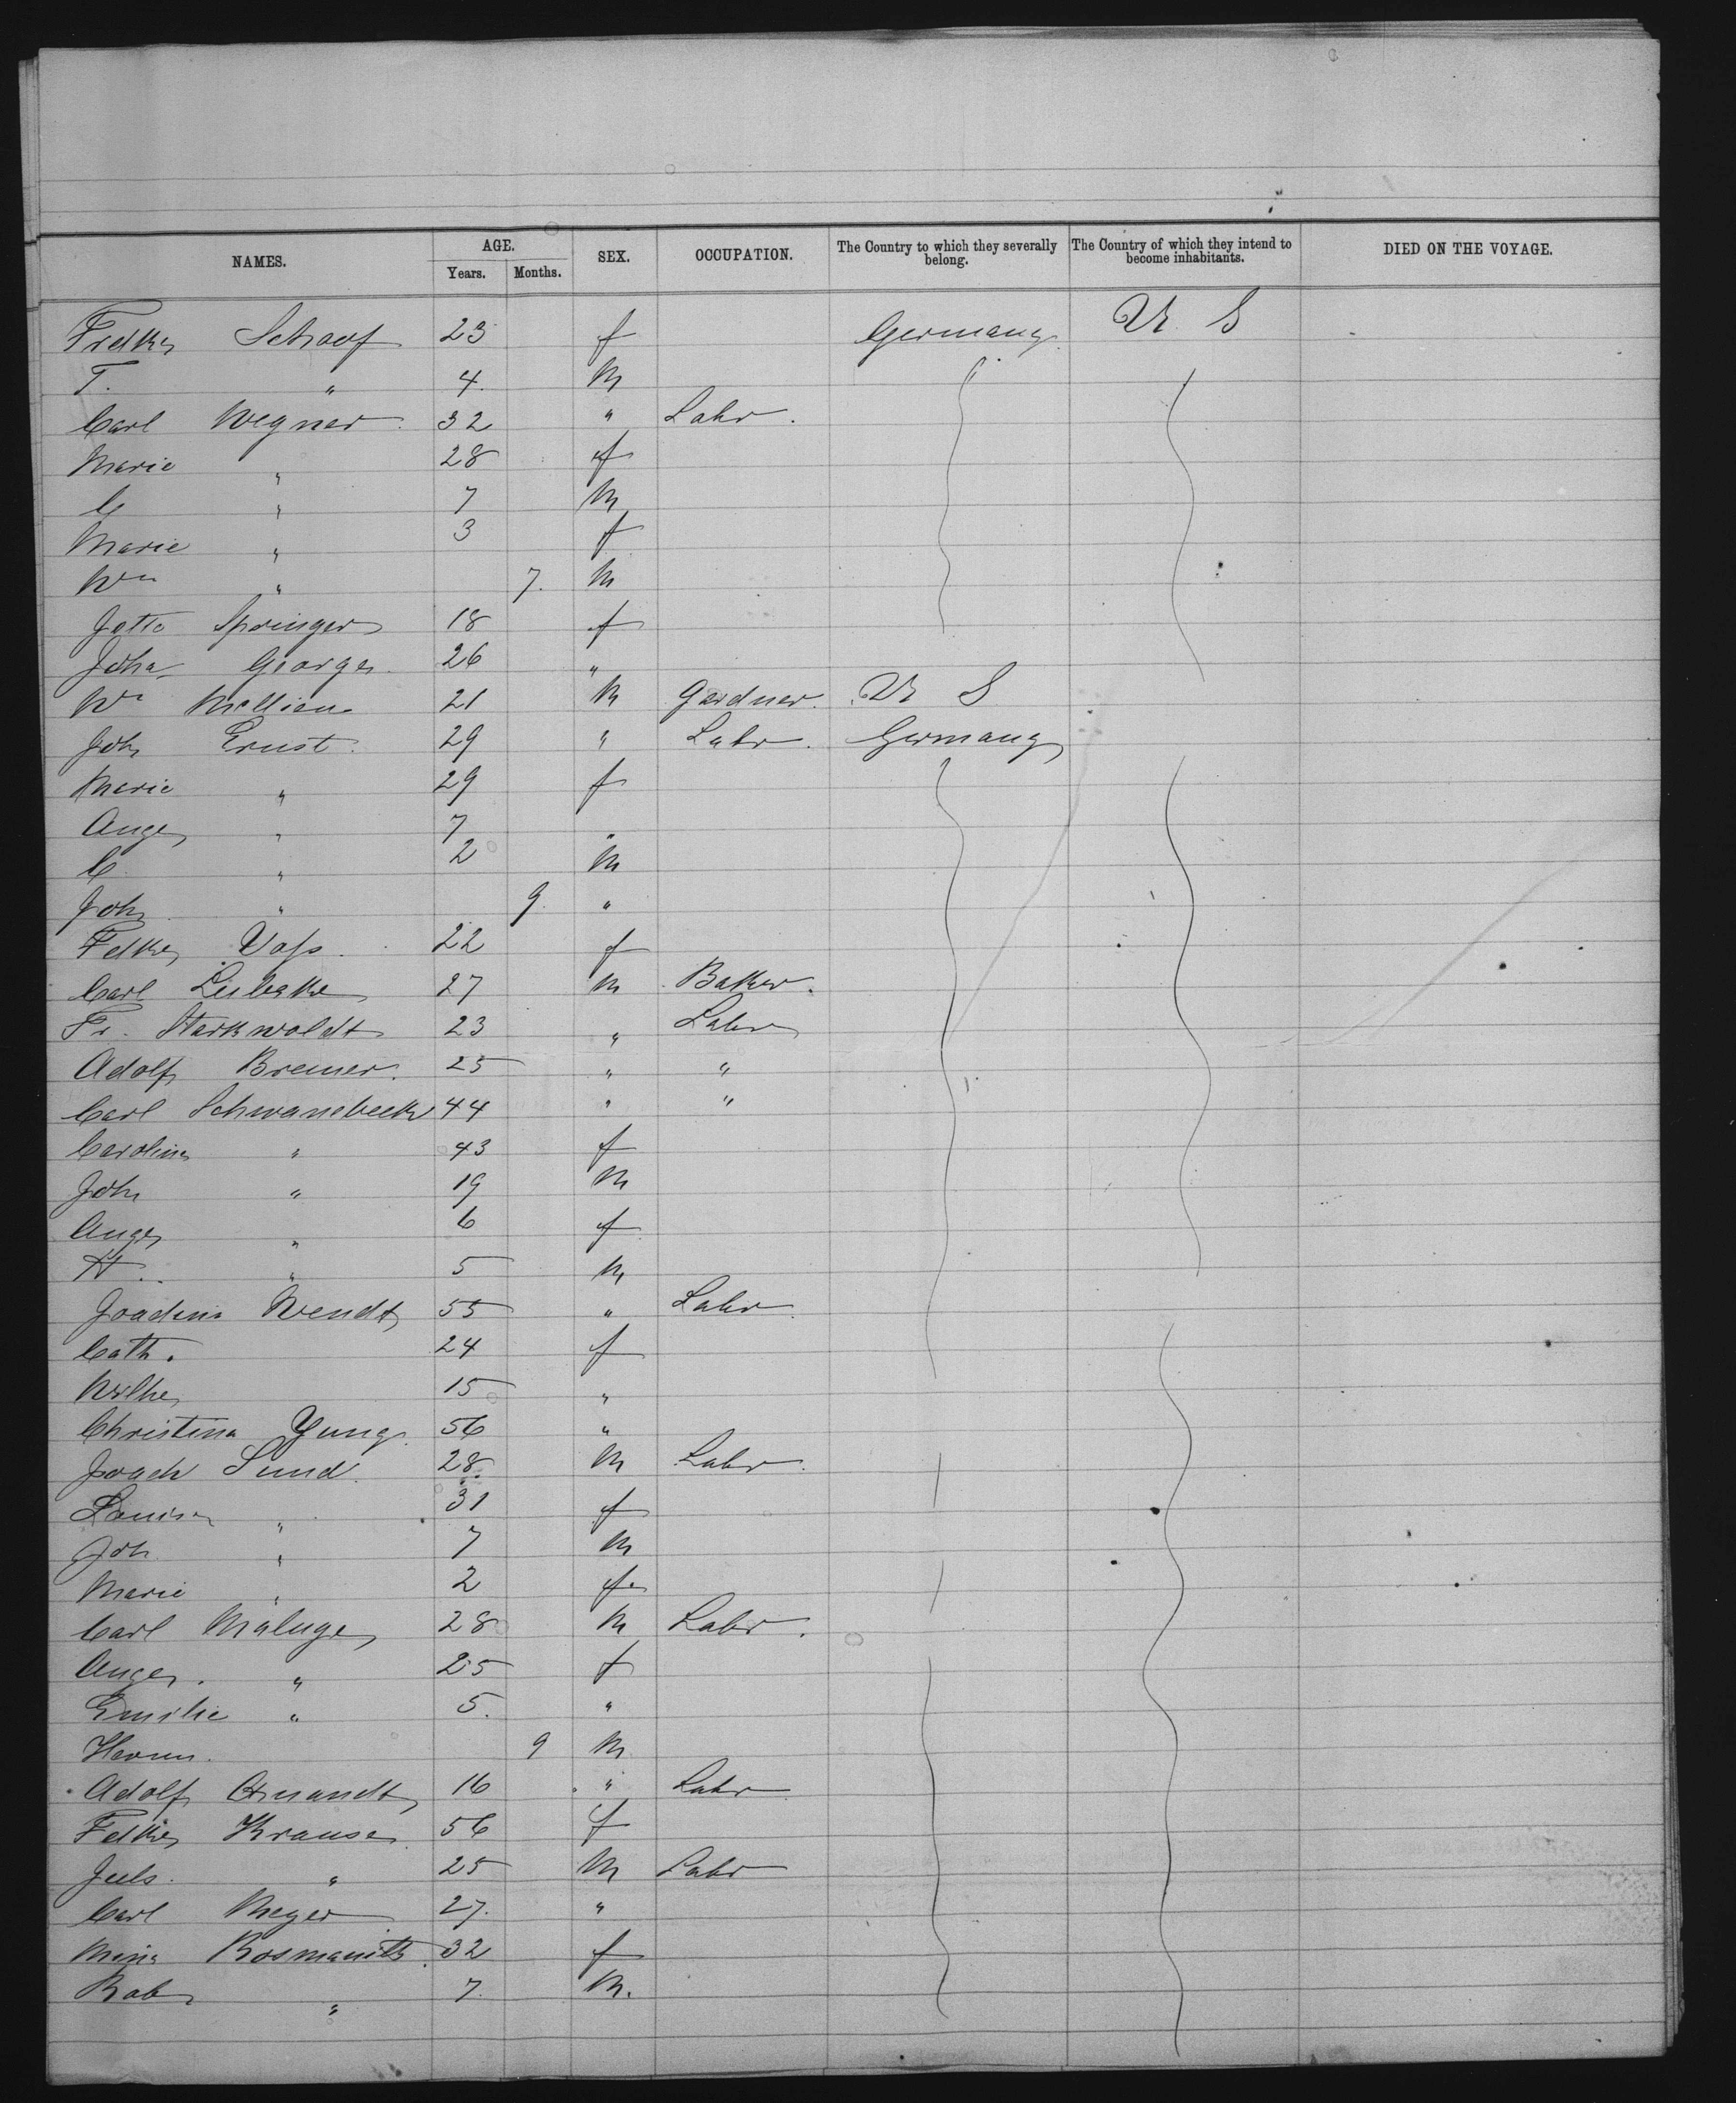 NAMES. AGE. SEX. OCCUPATION. The Country to which they severally belong. The Country of which they intend to become inhabitants. DIED ON THE VOYAGE.
Years. Months.
Fredke Schaof 23 f Germany U S
T. " 4. M
Carl Wegner. 32 " Labr.
Marie " 28 f
C " 7 M
Marie " 3 f
Wm " 7. M
Jette Springer 18 f
Joha George 26 "
Wm 21 M Gardner. U S
Joh Ernst. 29 " Labr. Germany
Marie " 29 f
Auge " 7 "
C " 2 M
Joh " 9 "
Fdke Vass. 22 f
Carl 27 M Baker.
Fr. Starkwoldt 23 " Labr
Adolf Bremer. 25 " "
Carl Schwanebeck 44 " "
Caroline " 43 f
Joh " 19 M
Auge " 6 f
H. " 5 M
Joachim Wendt 55 " Labr.
Cath. 24 f
Wilhe 15 "
Christina Yung. 56 "
Joach Sund. 28. M Labr.
Louise " 31 f
Joh " 7 M
Marie " 2 f
Carl Maluge 28 M Labr.
Auge. " 25 f
Emilie " 5. "
Herm. 9 M
Adolf 16 " Labr
Fdke Krause 56 f
Juls. " 25 M Labr
Carl Meyer 27. "
Mina Rosmanith. 32 f
Rob " 7. M.